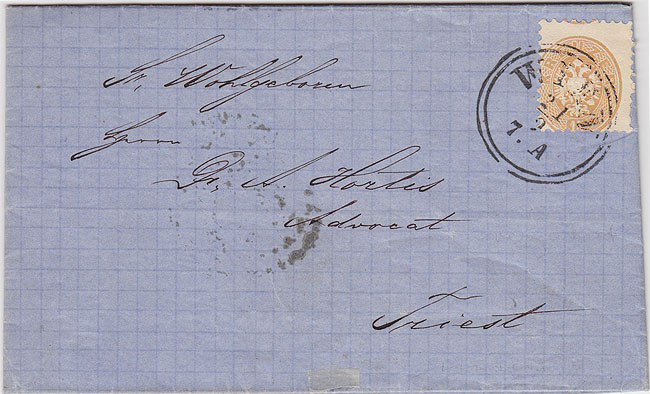 Sr. Wohlgeboren
Herrn
Dr. A. Hortis
Advocat
Triest
WIEN
21
7. A